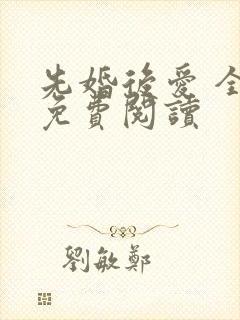 先婚後愛 全
免費閱讀
劉敏鄭